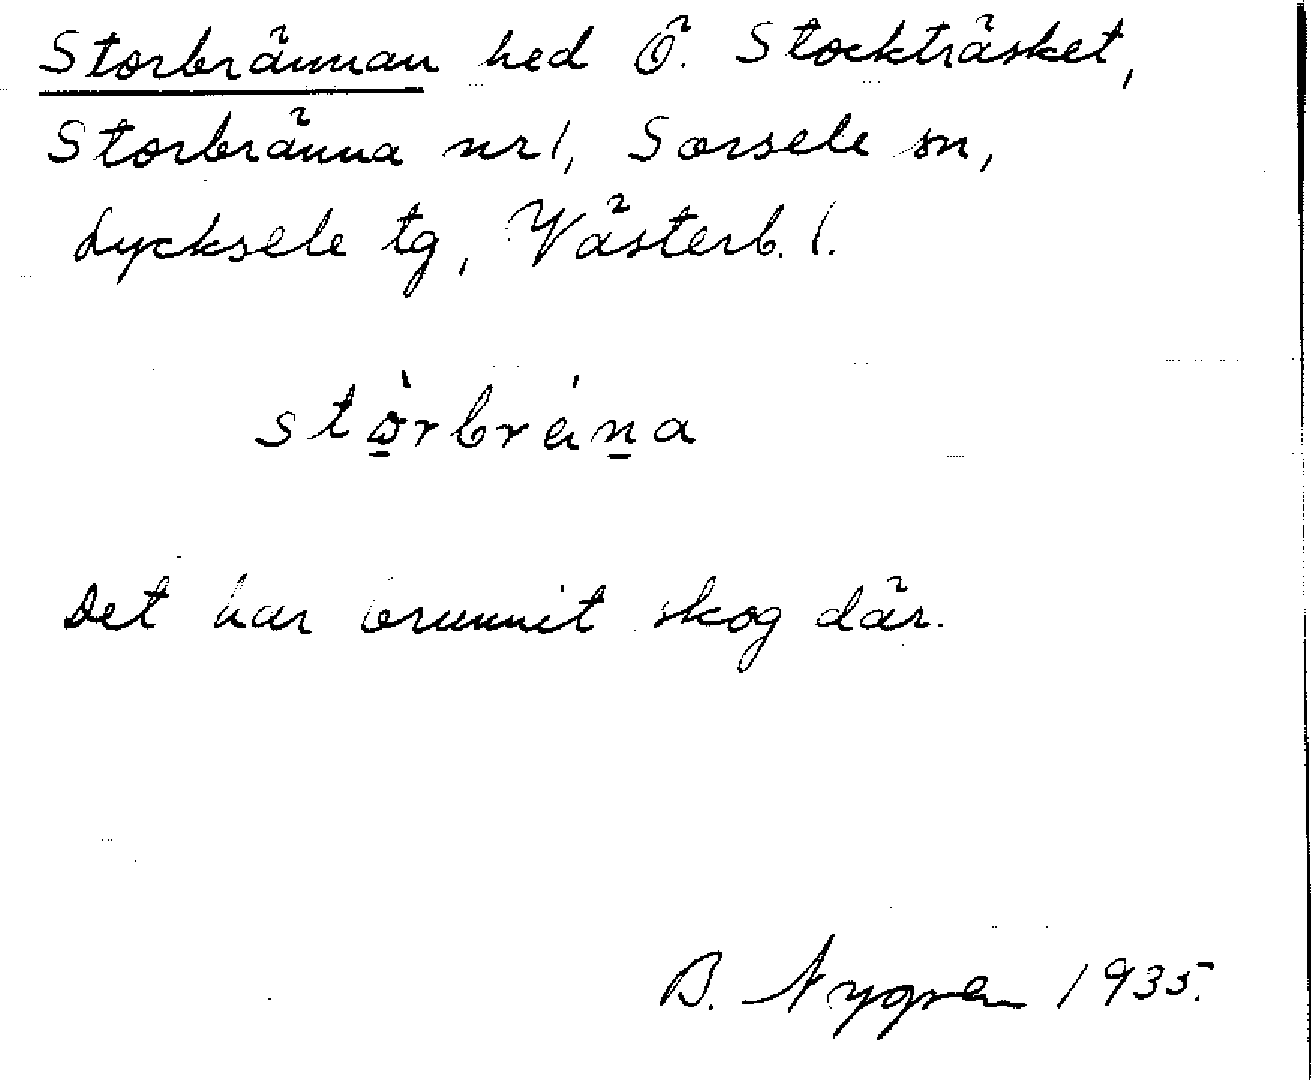 Storbrännan hed Ö. Stockträsket,
Storbränna nr 1, Sorsele sn,
Lycksele tg, Västerb. l.
stòrbrä́na
Det har brunnit skog där.
B. Nygren 1935.